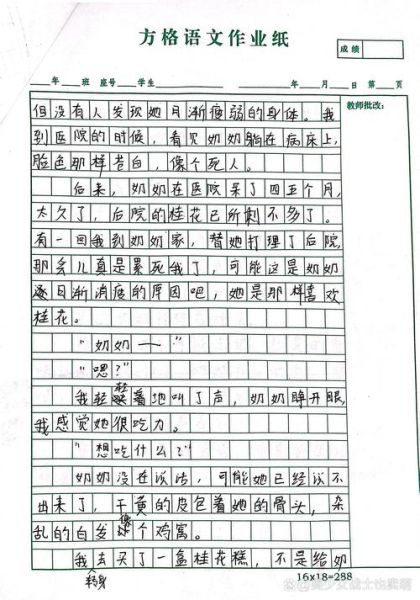 方格语文作业纸
成绩
年 班 座号 学生 年 月 日 第 页
教师批改:
但没有人发现她日渐疲弱的身体。我
到医院的时候,看见奶奶躺在病床上,
脸色那样苍白,像个死人。
后来,奶奶在医院呆了四五个月,
太久了,后院的桂花已所剩不多了。
有一回我到奶奶家,替她打理了后院,
那会儿真是累死我了,可能这是奶奶
逐日渐消疲的原因吧,她是那样喜欢
桂花。
“奶奶——”
“嗯?”
我轻轻着地叫了声,奶奶睁开眼,
我感觉她很吃力。
“想吃什么?”
奶奶没在说话,可能她已经说不
出来了,干黄的皮包着她的骨头,杂
乱的白发像个鸡窝。
我转身去买了一盒桂花糕,不是给奶
16x18=288